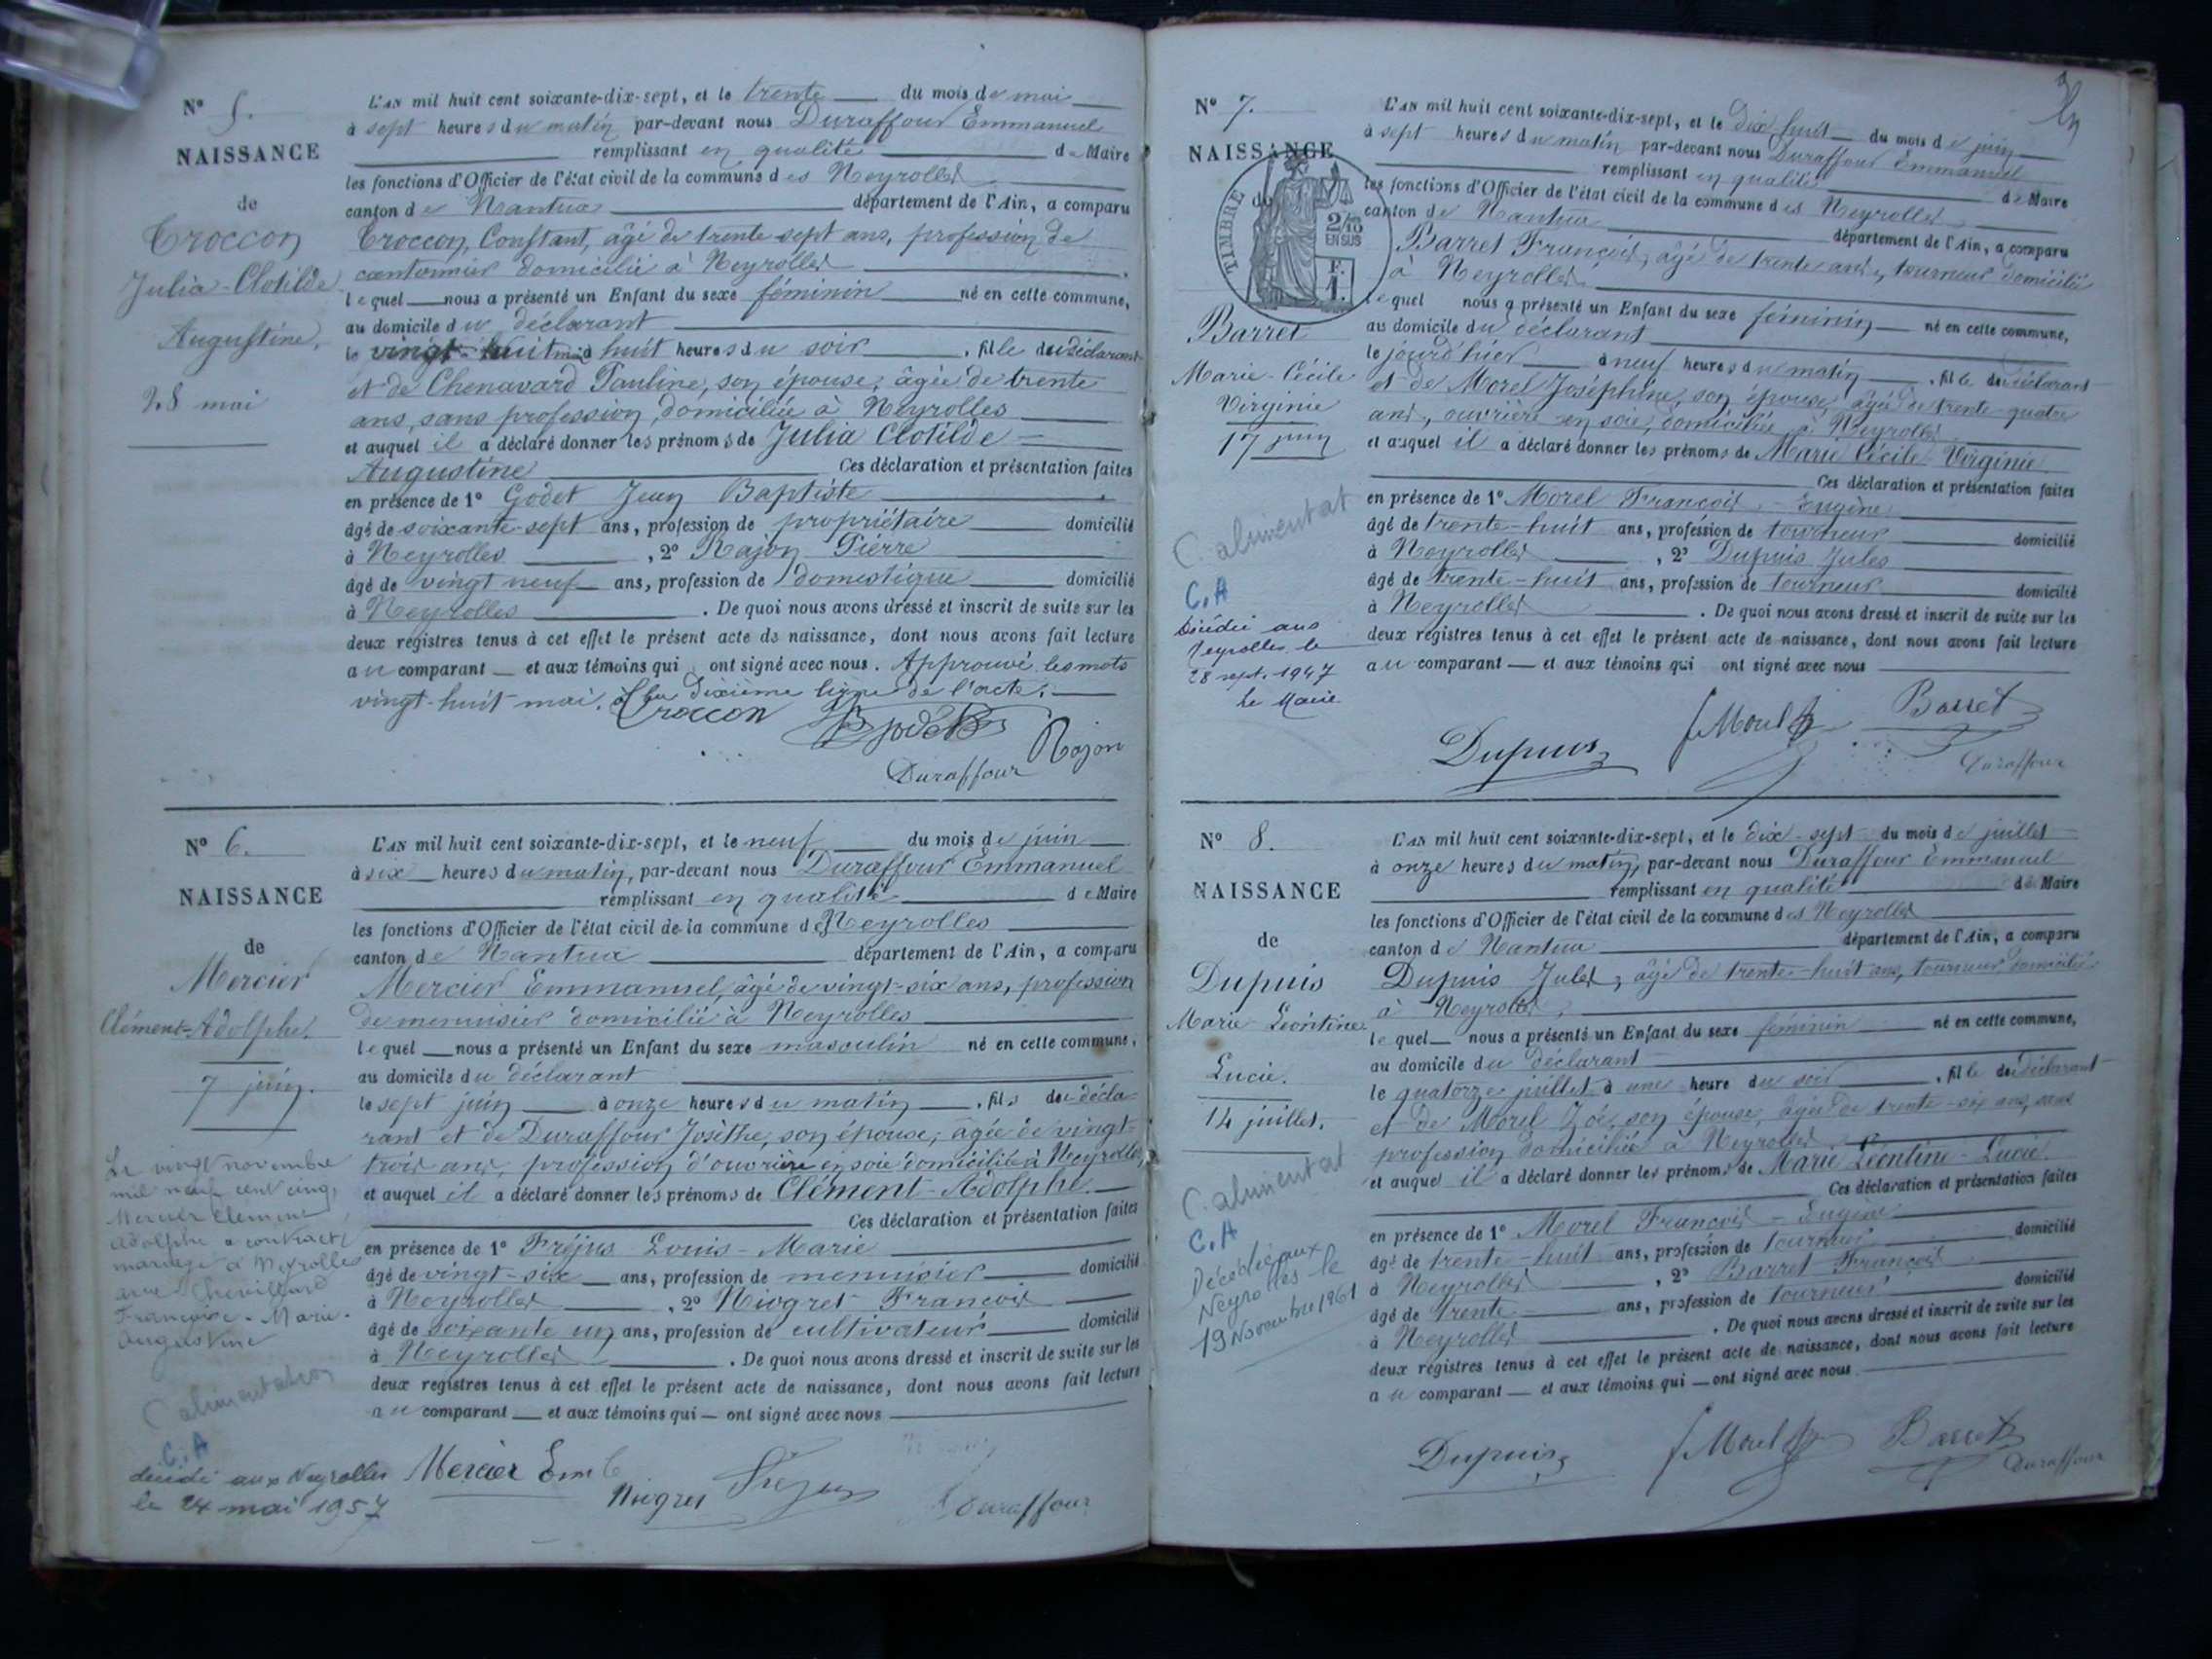 N° 5.
NAISSANCE
de
Croccon
Julia-Clotilde
Augustine.
28 mai
L'AN mil huit cent soixante-dix-sept, et le trente du mois de mai
à sept heures du matin par-devant nous Duraffour Emmanuel
remplissant en qualité de Maire
les fonctions d'Officier de l'état civil de la commune des Neyrolles
canton de Nantua département de l'Ain, a comparu
Croccon, Constant, âgé de trente sept ans, profession de
cantonnier domicilié à Neyrolles
lequel nous a présenté un Enfant du sexe féminin né en cette commune,
au domicile du déclarant
le vingt-huit mai à huit heures du soir, fille du déclarant
et de Chenavard Pauline, son épouse, âgée de trente
ans, sans profession, domiciliée à Neyrolles
et auquel il a déclaré donner les prénoms de Julia Clotilde
Augustine Ces déclaration et présentation faites
en présence de 1° Godet Jean Baptiste
âgé de soixante-sept ans, profession de propriétaire domicilié
à Neyrolles, 2° Rajon Pierre
âgé de vingt neuf ans, profession de domestique domicilié
à Neyrolles. De quoi nous avons dressé et inscrit de suite sur les
deux registres tenus à cet effet le présent acte de naissance, dont nous avons fait lecture
au comparant et aux témoins qui ont signé avec nous. Approuvé les mots
vingt-huit mai, à la dixième ligne de l'acte.
Croccon
Rajon
Duraffour
N° 6.
NAISSANCE
de
Mercier
Clément-Adolphe.
7 juin.
Le vingt novembre
mil neuf cent cinq,
Mercier Clément
Adolphe a contracté
mariage à Neyrolles
avec Chevillard
Françoise-Marie-
Augustine
C alimentation
C.A
décédé aux Neyrolles
le 24 mai 1957
L'AN mil huit cent soixante-dix-sept, et le neuf du mois de juin
à six heures du matin, par-devant nous Duraffour Emmanuel
remplissant en qualité de Maire
les fonctions d'Officier de l'état civil de la commune des Neyrolles
canton de Nantua département de l'Ain, a comparu
Mercier Emmanuel, âgé de vingt-six ans, profession
de menuisier domicilié à Neyrolles
lequel nous a présenté un Enfant du sexe masculin né en cette commune,
au domicile du déclarant
le sept juin à onze heures du matin, fils du décla-
rant et de Duraffour Josèthe, son épouse, âgée de vingt-
trois ans, profession d'ouvrière en soie domiciliée à Neyrolles,
et auquel il a déclaré donner les prénoms de Clément-Adolphe.
Ces déclaration et présentation faites
en présence de 1° Fréjus Louis-Marie
âgé de vingt-six ans, profession de menuisier domicilié
à Neyrolles, 2° Niogret François
âgé de soixante un ans, profession de cultivateur domicilié
à Neyrolles. De quoi nous avons dressé et inscrit de suite sur les
deux registres tenus à cet effet le présent acte de naissance, dont nous avons fait lecture
au comparant et aux témoins qui ont signé avec nous
Mercier Em
Niogret
Frejus
Duraffour
N° 7.
NAISSANCE
de
TIMBRE
2/10
EN SUS
F.
1.
Barret
Marie-Cécile
Virginie
17 juin
C alimentat
C.A
Décédée aux
Neyrolles le
28 sept. 1947
Le Maire
L'AN mil huit cent soixante-dix-sept, et le dix huit du mois de juin
à sept heures du matin par-devant nous Duraffour Emmanuel
remplissant en qualité de Maire
les fonctions d'Officier de l'état civil de la commune des Neyrolles
canton de Nantua département de l'Ain, a comparu
Barret François, âgé de trente ans, tourneur domicilié
à Neyrolles
lequel nous a présenté un Enfant du sexe féminin né en cette commune,
au domicile du déclarant
le jour d'hier à neuf heures du matin, fille du déclarant
et de Morel Joséphine, son épouse, âgée de trente-quatre
ans, ouvrière en soie, domiciliée à Neyrolles
et auquel il a déclaré donner les prénoms de Marie Cécile Virginie
Ces déclaration et présentation faites
en présence de 1° Morel François-Eugène
âgé de trente-huit ans, profession de tourneur domicilié
à Neyrolles, 2° Dupuis Jules
âgé de trente-huit ans, profession de tourneur domicilié
à Neyrolles. De quoi nous avons dressé et inscrit de suite sur les
deux registres tenus à cet effet le présent acte de naissance, dont nous avons fait lecture
au comparant et aux témoins qui ont signé avec nous
Dupuis
Barret
Duraffour
N° 8.
NAISSANCE
de
Dupuis
Marie Léontine
Lucie.
14 juillet.
C. alimentat
C.A
Décédée aux
Neyrolles le
19 Novembre 1961
L'AN mil huit cent soixante-dix-sept, et le dix-sept du mois de juillet
à onze heures du matin, par-devant nous Duraffour Emmanuel
remplissant en qualité de Maire
les fonctions d'Officier de l'état civil de la commune des Neyrolles
canton de Nantua département de l'Ain, a comparu
Dupuis Jules, âgé de trente-huit ans, tourneur domicilié
à Neyrolles,
lequel nous a présenté un Enfant du sexe féminin né en cette commune,
au domicile du déclarant
le quatorze juillet à une heure du soir, fille du déclarant
et de Morel Zoé, son épouse, âgée de trente-six ans, sans
profession domiciliée à Neyrolles
et auquel il a déclaré donner les prénoms de Marie Léontine-Lucie.
Ces déclaration et présentation faites
en présence de 1° Morel François-Eugène
âgé de trente-huit ans, profession de tourneur domicilié
à Neyrolles, 2° Barret François
âgé de trente ans, profession de tourneur domicilié
à Neyrolles. De quoi nous avons dressé et inscrit de suite sur les
deux registres tenus à cet effet le présent acte de naissance, dont nous avons fait lecture
au comparant et aux témoins qui ont signé avec nous
Dupuis
Morel
Barret
Duraffour